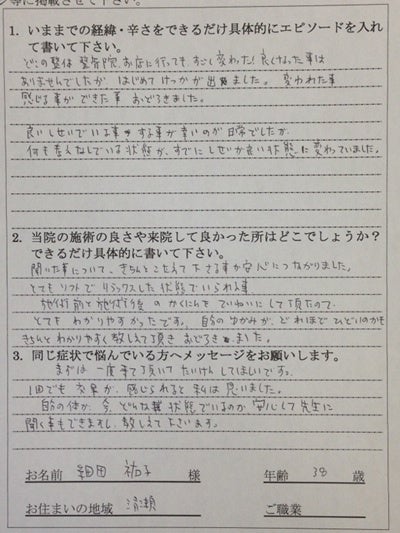 等に掲載させて下さい。
1. いままでの経緯・辛さをできるだけ具体的にエピソードを入れ
て書いて下さい。
どこの整体 整骨院、お店に行っても、すごく変わった！良くなった事は
ありませんでしたが はじめて けっかが出ました。 変われた事
感じる事ができた事 おどろきました。
良いしせいでいる事 する事が辛いのが日常でしたが
何も考えなしでいる状態が、すでに しせいが良い状態に変わっていました。
2. 当院の施術の良さや来院して良かった所はどこでしょうか？
できるだけ具体的に書いて下さい。
聞いた事について、きちんとこたえて下さる事が安心につながりました。
とてもソフトでリラックスした状態でいられる事
施術前と施術後のかくにんをていねいにして頂たので
とても わかりやすかったです。 自分のゆがみが、どれほどひどいのかも
きちんとわかりやすく教えて頂き おどろきました。
3. 同じ症状で悩んでいる方へメッセージをお願いします。
まずは一度来て頂いて たいけんしてほしいです。
1回でも 効果が、感じられると私は思いました。
自分の体が、今、どんな状態でいるのか 安心して先生に
聞く事もできますし、教えて下さいます。
お名前 細田 祐子 様 年齢 38 歳
お住まいの地域 清瀬 ご職業